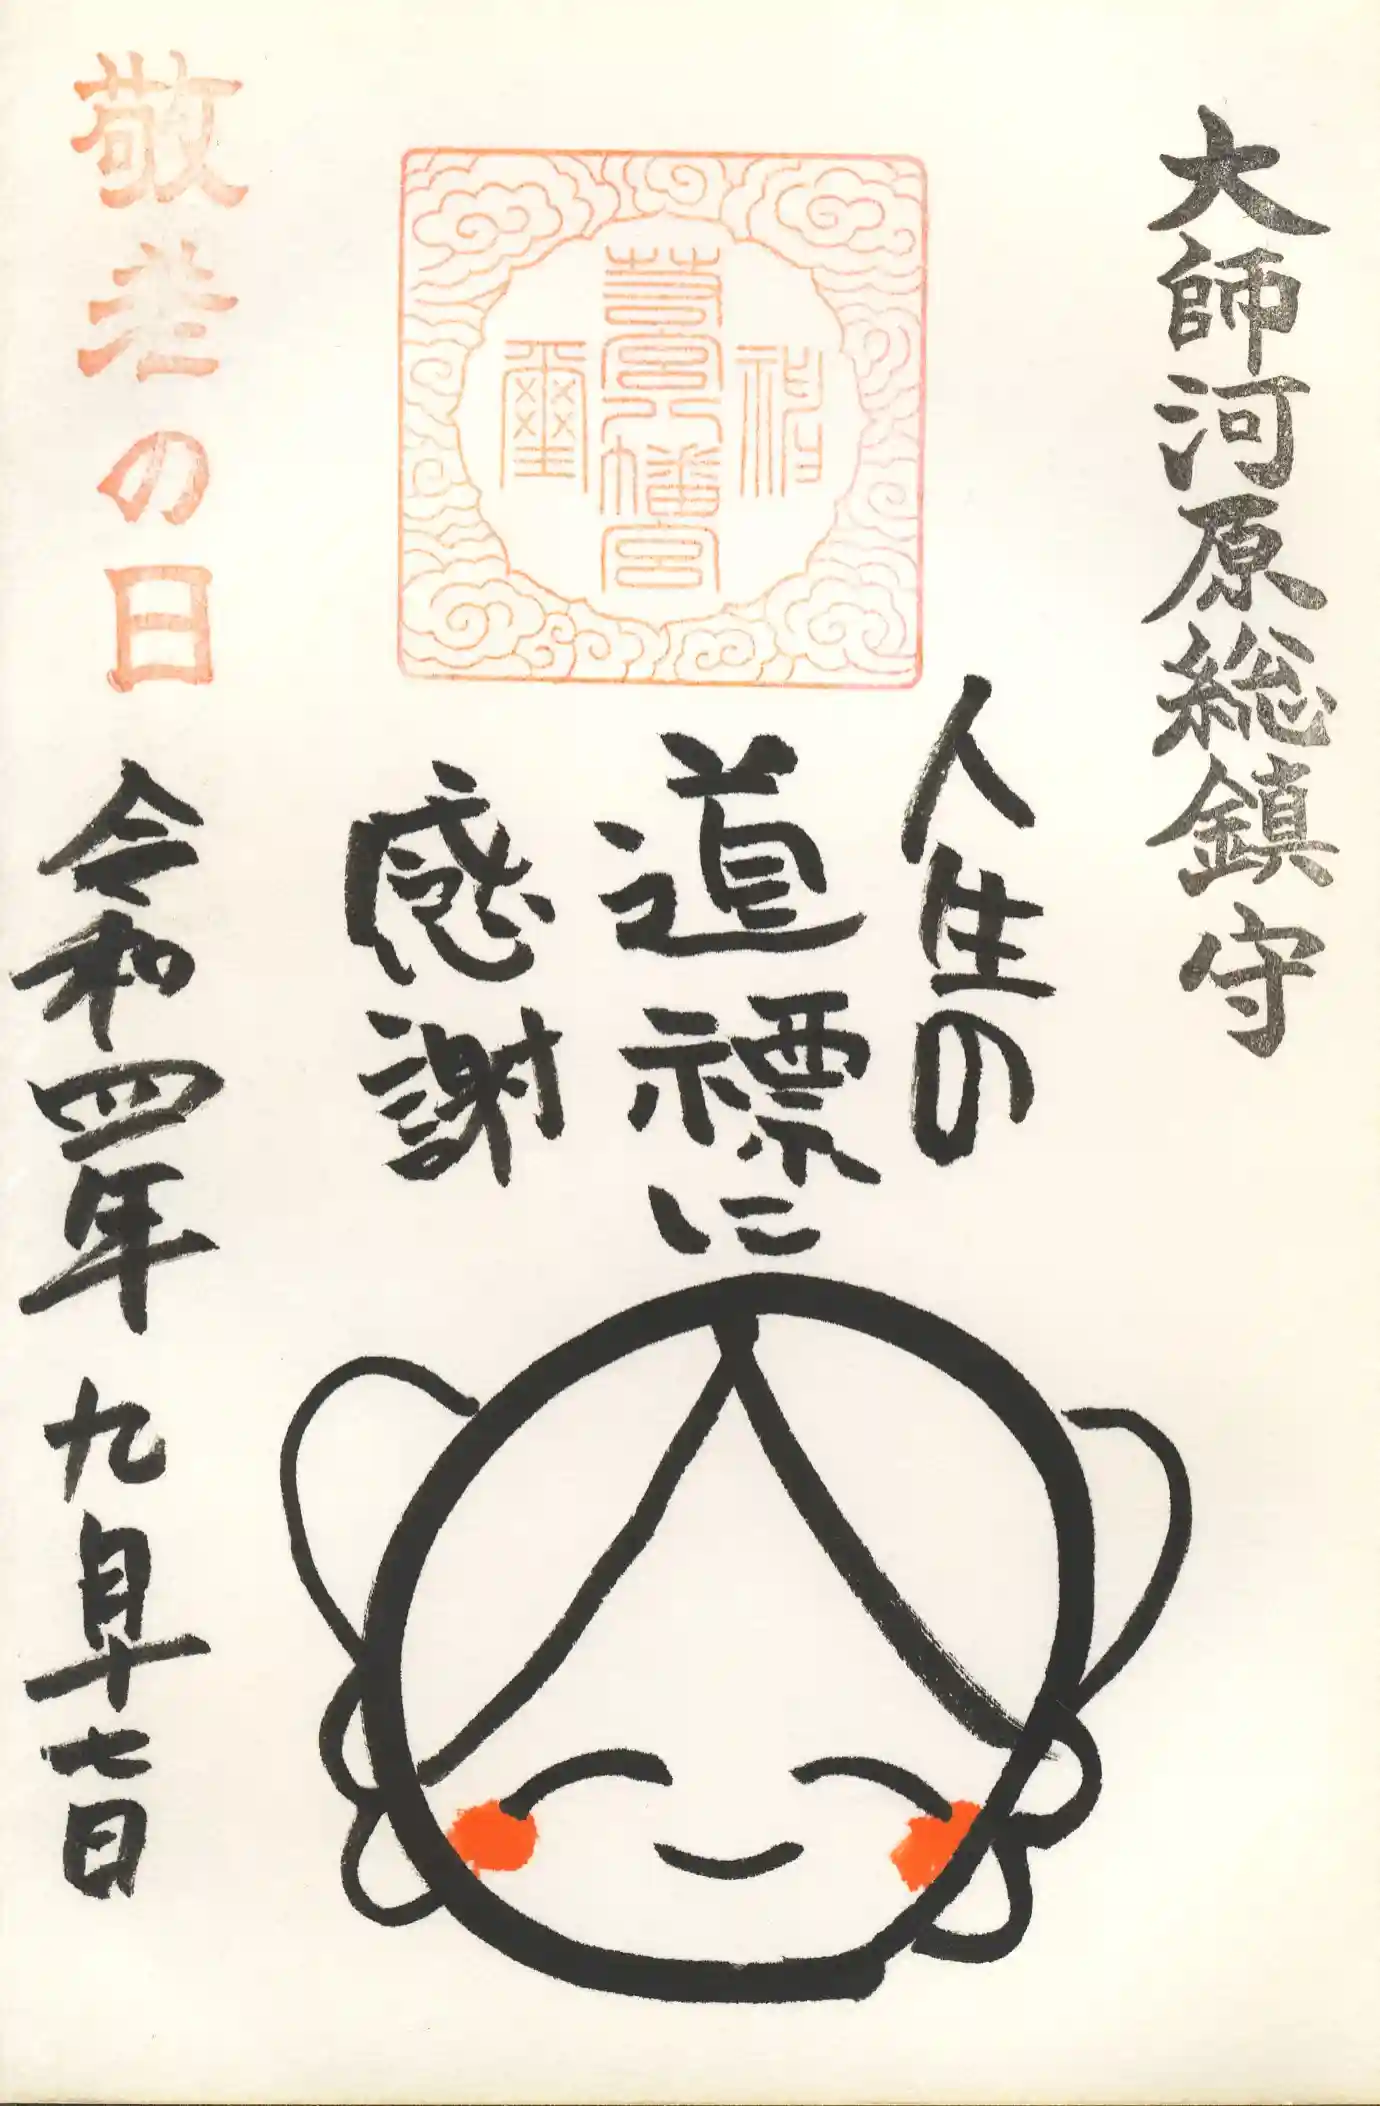 大師河原総鎮守
神
若宮八幡宮
璽
人生の
道標に
感謝
敬老の日
令和四年九月十七日